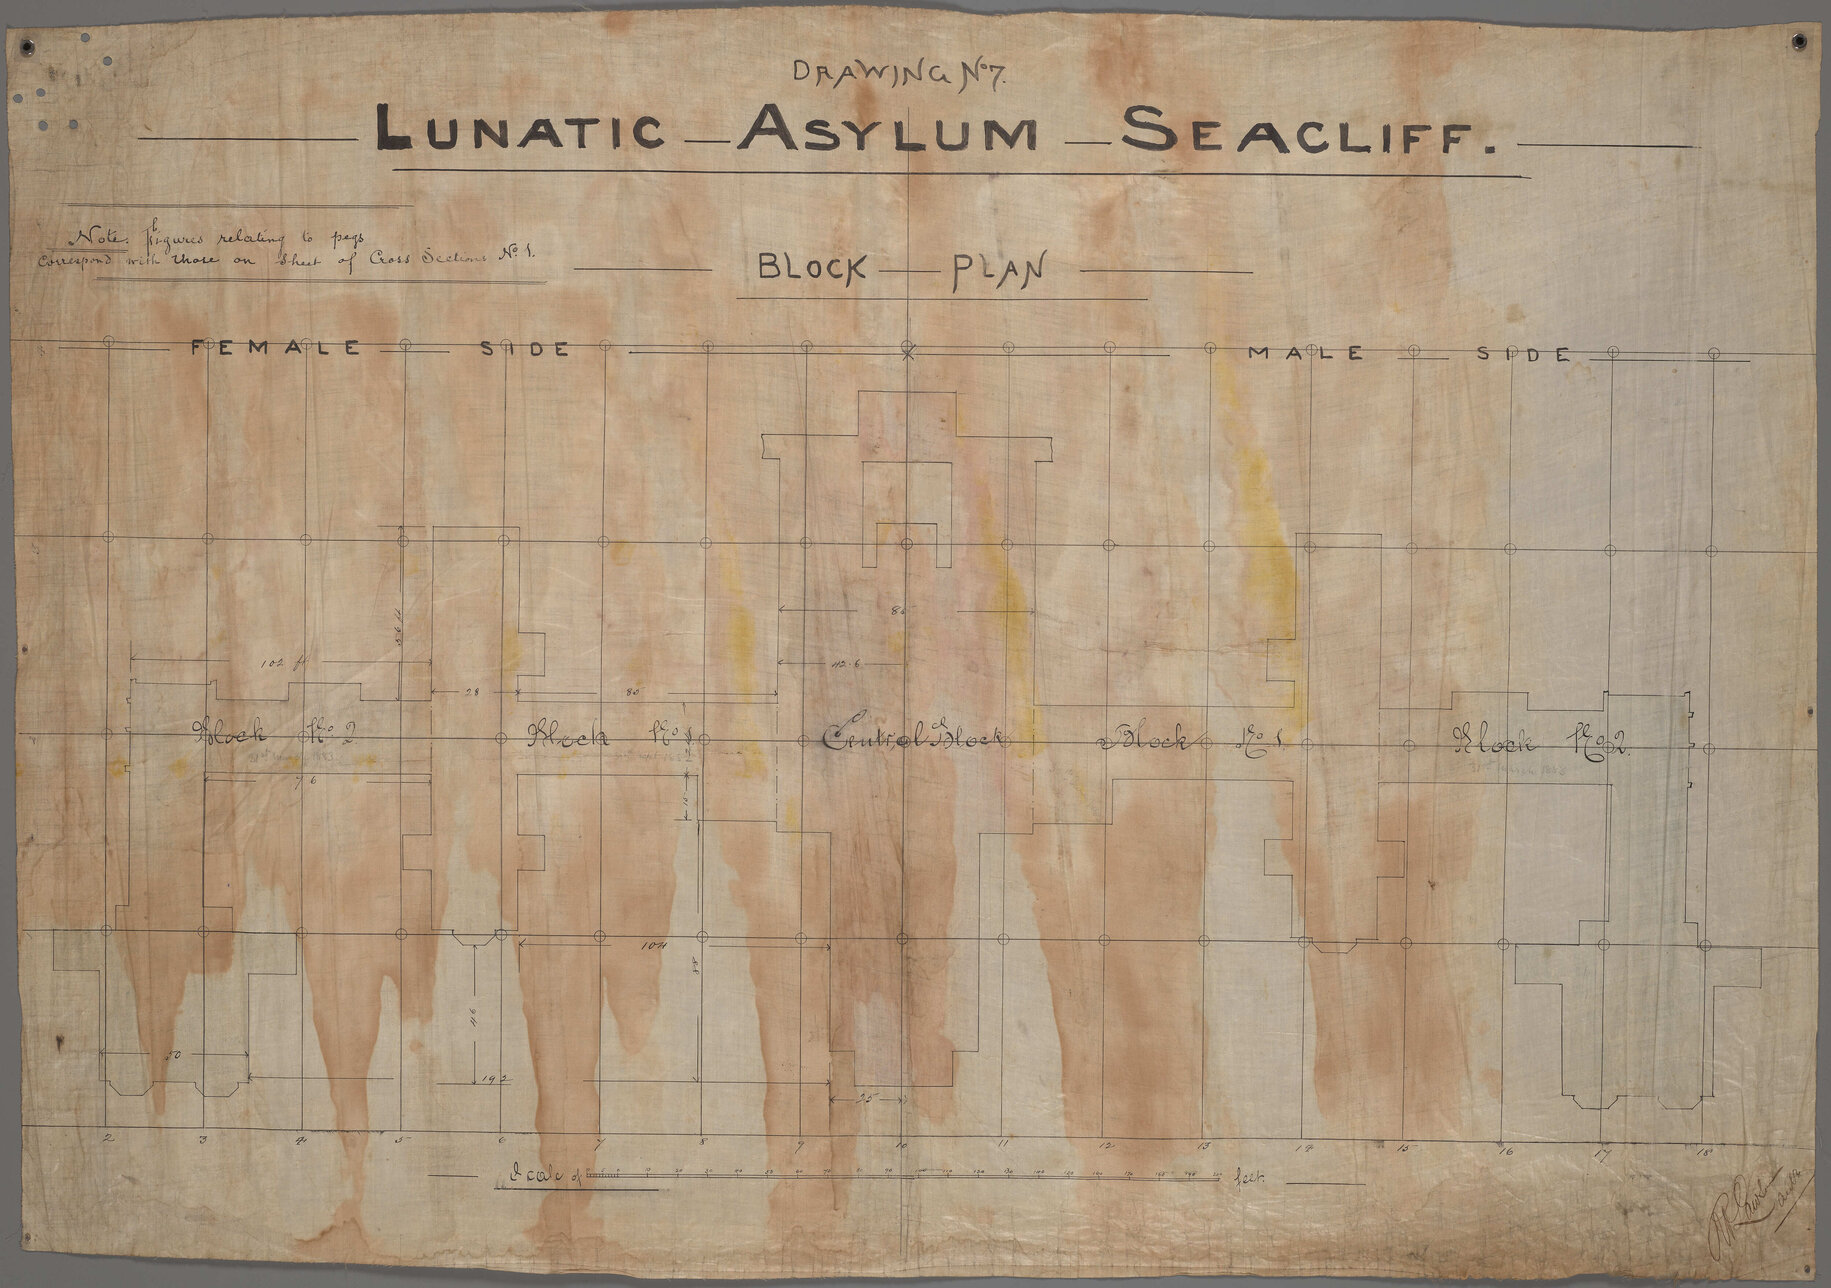 DRAWING No 7.
LUNATIC ASYLUM SEACLIFF.
Note. figures relating to pegs
correspond with those on sheet of Cross Sections No 1.
BLOCK PLAN
FEMALE SIDE
MALE SIDE
85
42.6
102 ft
28
85
Block No 2
Block No 1
Central Block
Block No 1
Block No 2.
76
104
46
50
192
25
2 3 4 5 6 7 8 9 10 11 12 13 14 15 16 17 18
Scale of feet.